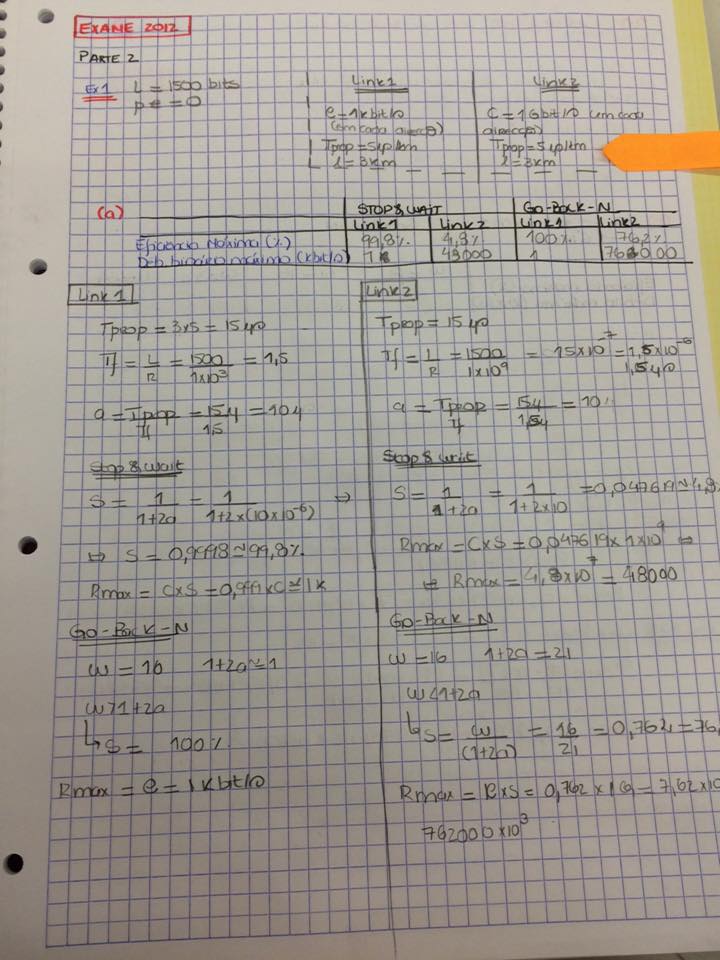 EXAME 2012
PARTE 2
Ex1 L = 1500 bits
pe = 0
Link1
C = 1kbit/s
(em cada direcção)
Tprop = 5µs/km
l = 3km
Link2
C = 1Gbit/s (em cada
direcção)
Tprop = 5µs/km
l = 3km
(a)
STOP & WAIT GO-BACK-N
Link1 Link2 Link1 Link2
Eficiência Máxima (%) 99,8% 4,8% 100% 76,2%
Deb. binário máximo (kbit/s) 1k 48000 1
Link 1
Tprop = 3x5 = 15µs
Tf = L/R = 1500/1x10³ = 1,5
a = Tprop/Tf = 15µ/1,5 = 10µ
Stop & wait
S = 1/1+2a = 1/1+2x(10x10⁻⁶) ⇔
⇔ S = 0,9998 ≃ 99,8%
Rmax = CxS = 0,999xC ≃ 1k
GO-BACK-N
W = 16 1+2a ≃ 1
W > 1+2a
↳ S = 100%
Rmax = C = 1kbit/s
Link 2
Tprop = 15µs
Tf = L/R = 1500/1x10⁹ = 15x10⁻⁷ = 1,5x10⁻⁶
1,5µs
a = Tprop/Tf = 15µ/1,5µ = 10
Stop & wait
S = 1/1+2a = 1/1+2x10 = 0,047619 ≃ 4,8
Rmax = CxS = 0,047619x1x10⁹ ⇔
⇔ Rmax = 4,8x10⁷ = 48000
GO-BACK-N
W = 16 1+2a = 21
W < 1+2a
↳ S = W/(1+2a) = 16/21 = 0,762 = 76,
Rmax = CxS = 0,762 x 1G = 7,62x10
762000x10³